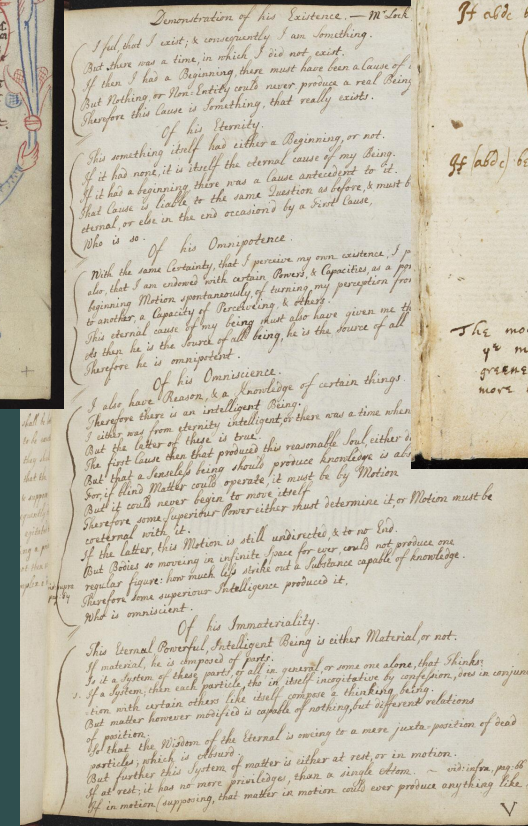 Demonstration of his Existence. — Mr Lock
I feel, that I exist; & consequently I am Something.
But there was a time, in which I did not exist.
If then I had a Beginning, there must have been a Cause of
But Nothing, or Non-Entity could never produce a real Being
Therefore this Cause is Something, that really exists.
Of his Eternity.
This something itself had either a Beginning, or not.
If it had none, it is itself the eternal cause of my Being.
If it had a beginning, there was a cause antecedent to it.
That Cause is liable to the same Question as before, & must b
eternal, or else in the end occasion'd by a First Cause,
Who is so.
Of his Omnipotence.
With the same Certainty, that I perceive my own existence, I p
also, that I am endowed with certain Powers, & Capacities, as a po
beginning Motion spontaneously, of turning my perception fro
to another, a Capacity of Perceiveing, & others.
This eternal cause of my being must also have given me th
As then he is the Source of all being, he is the source of all
Therefore he is omnipotent.
Of his Omniscience.
I also have Reason, & a Knowledge of certain things.
Therefore there is an intelligent Being.
I either was from eternity intelligent, or there was a time when
But the latter of these is true.
The first Cause then that produced this reasonable Soul, either d
But that a Senseless being should produce knowledge is abs
For, if blind Matter could operate, it must be by Motion
But it could never begin to move itself
Therefore some Superiour Power either must determine it, or Motion must be
coeternal with it.
If the latter, this Motion is still undirected, & to no End.
But Bodies so moving in infinite Space for ever, could not produce one
regular figure: how much less strike out a Substance capable of knowledge.
Therefore some superiour Intelligence produced it,
Who is omniscient.
Of his Immateriality.
This Eternal Powerful, Intelligent Being is either Material, or not.
If material, he is composed of parts.
Is it a System of these parts, or all in general, or some one alone, that Thinks.
1. If a System; then each particle, tho in itself incogitative by confession, does in conjunc
tion with certain others like itself compose a thinking being.
But matter however modified is capable of nothing, but different relations
of position.
So that the Wisdom of the Eternal is owing to a mere juxta-position of dead
particles; which is Absurd.
But further this System of matter is either at rest, or in motion.
If at rest; it has no mere priviledges, than a single Atom. ~ vid: infra, pag: 66
If in motion (supposing, that matter in motion could ever produce anything like
V
If abdc
If (abdc) be
The mo
ye m
greene
more